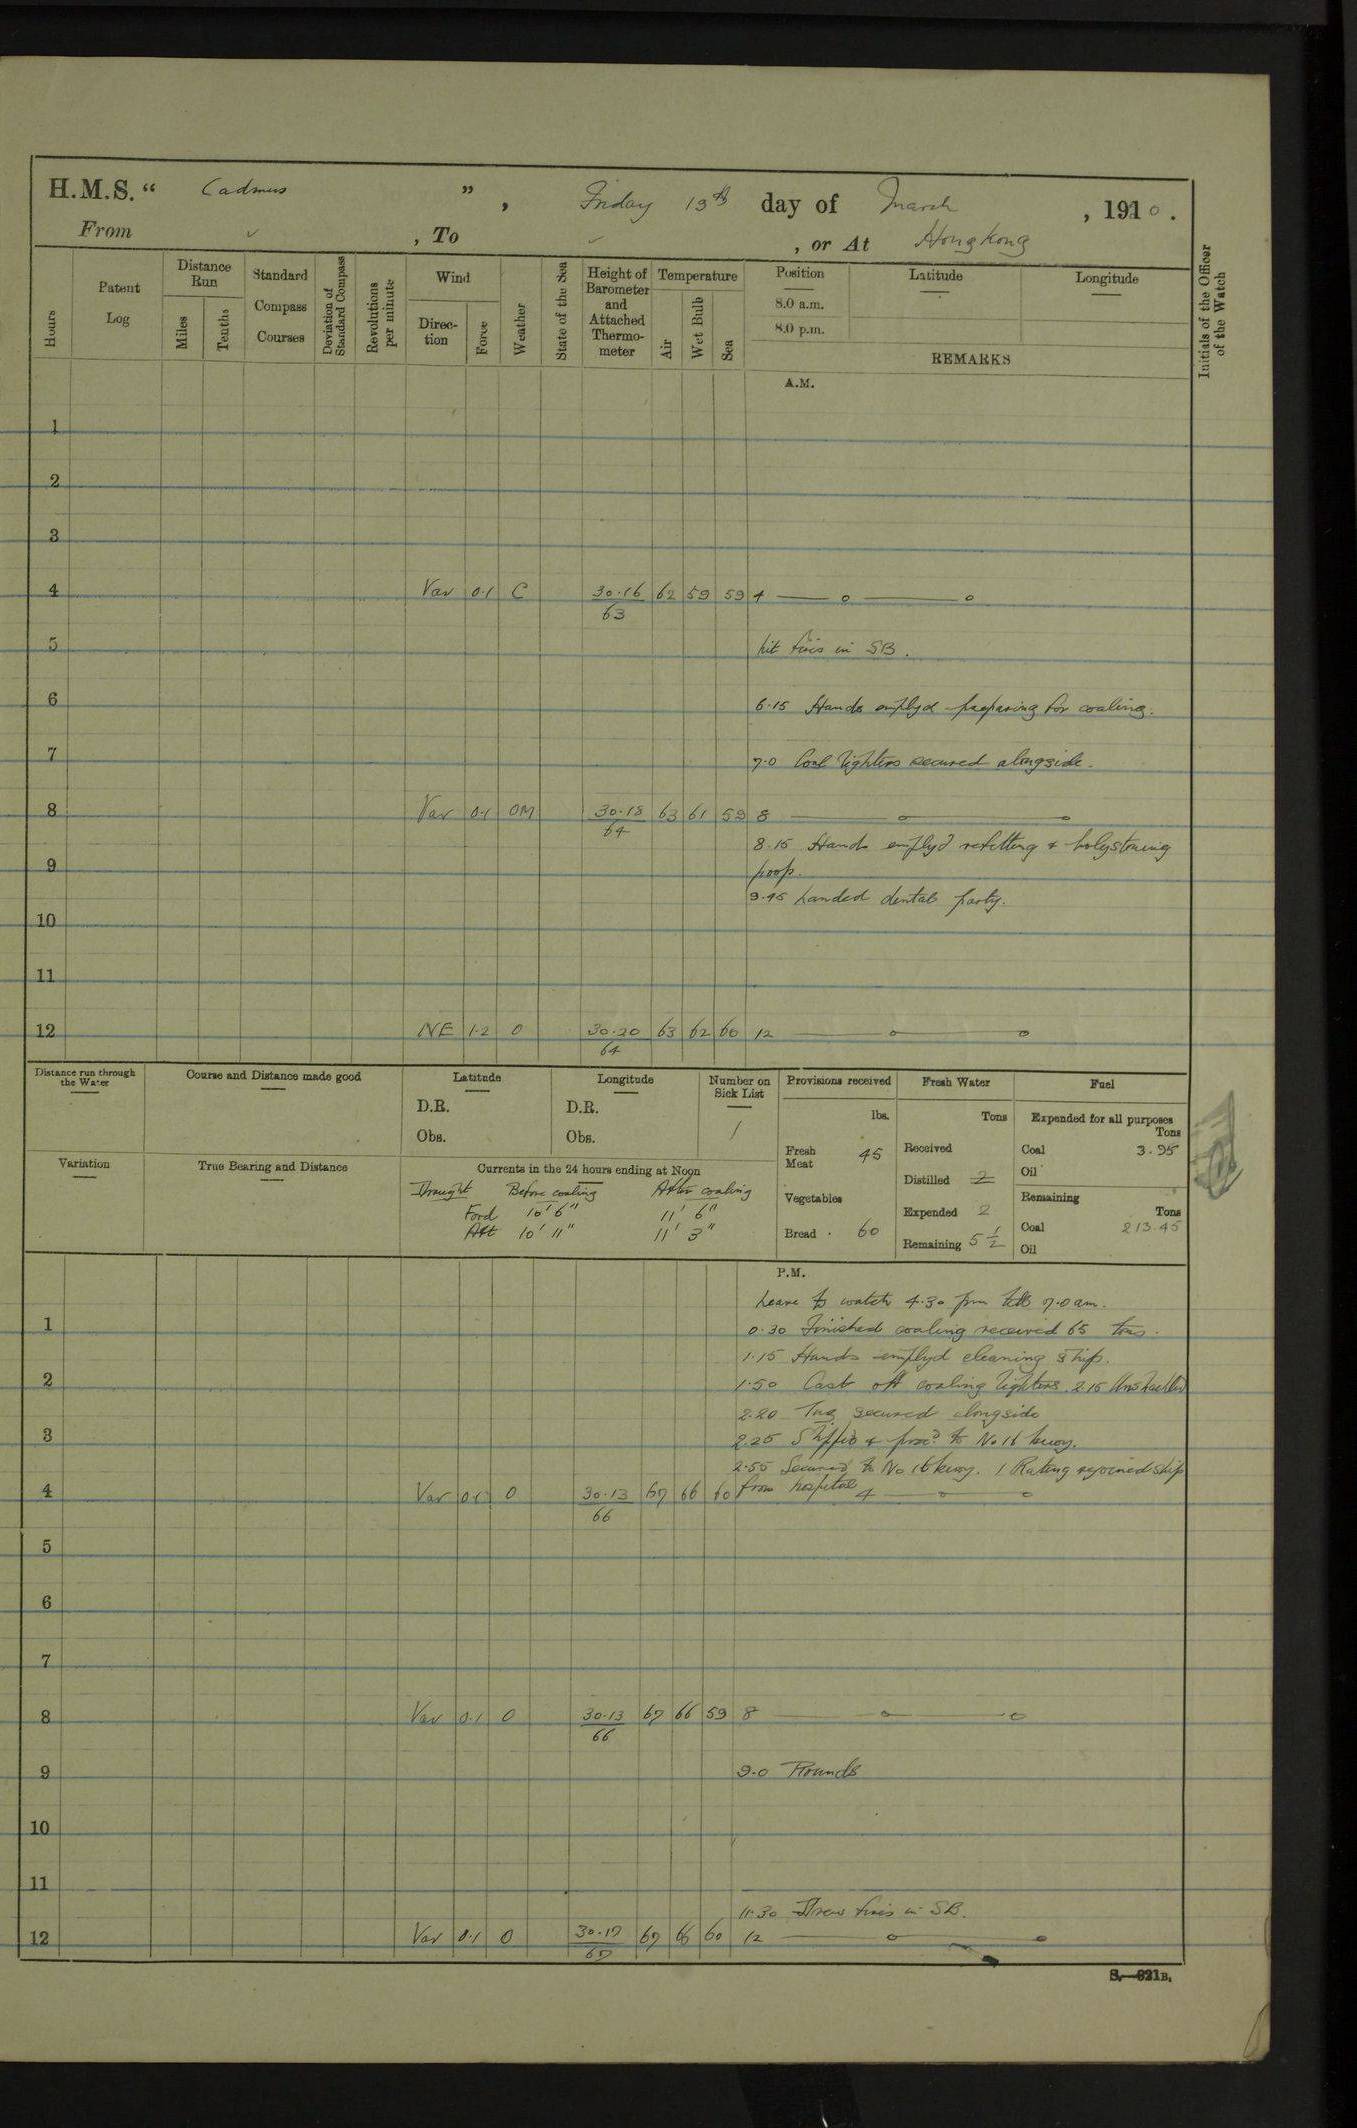 H.M.S. “ Cadmus ” , Friday 13th day of March , 1910 .
From ✓ , To ✓ , or At Hong Kong
Hours
Patent Log
Distance Run
Miles
Tenths
Standard Compass Courses
Deviation of Standard Compass
Revolutions per minute
Wind
Direction
Force
Weather
State of the Sea
Height of Barometer and Attached Thermometer
Temperature
Air
Wet Bulb
Sea
Position
8.0 a.m.
8.0 p.m.
Latitude
Longitude
REMARKS
Initials of the Officer of the Watch
A.M.
1
2
3
4 Var 0.1 C 30.16 62 59 59 4 —— o —— o
63
5 Lit fires in SB.
6 6.15 Hands emplyd preparing for coaling.
7 7.0 Coal lighters secured alongside.
8 Var 0.1 OM 30.18 63 61 59 8 —— o —— o
64
8.15 Hands emplyd refitting & holystoning
9 poop.
9.45 Landed dental party.
10
11
12 NE 1.2 O 30.20 63 62 60 12 —— o —— o
64
Distance run through the Water
Course and Distance made good
Latitude
D.R.
Obs.
Longitude
D.R.
Obs.
Number on Sick List
1
Provisions received
lbs.
Fresh Meat 45
Vegetables
Bread 60
Fresh Water
Tons
Received
Distilled 2
Expended 2
Remaining 5 ½
Fuel
Expended for all purposes
Tons
Coal 3.95
Oil
Remaining
Tons
Coal 213.45
Oil
Variation
True Bearing and Distance
Currents in the 24 hours ending at Noon
Draught Before coaling After coaling
Ford 10' 6" 11' 6"
Aft 10' 11" 11' 3"
P.M.
Leave to watch 4.30 pm till 7.0 am.
1 0.30 Finished coaling received 65 tons.
1.15 Hands emplyd cleaning ship.
2 1.50 Cast off coaling lighters. 2.15 Unshackled
2.20 Tug secured alongside
3 2.25 Slipped & procd to No 16 buoy.
2.55 Secured to No 16 buoy. 1 Rating rejoined ship
4 Var 0.1 O 30.13 67 66 60 from hospital 4 —— o —— o
66
5
6
7
8 Var 0.1 O 30.13 67 66 59 8 —— o —— o
66
9 9.0 Rounds
10
11
11.30 Drew fires in SB.
12 Var 0.1 O 30.17 67 66 60 12 —— o —— o
67
S.—321B.